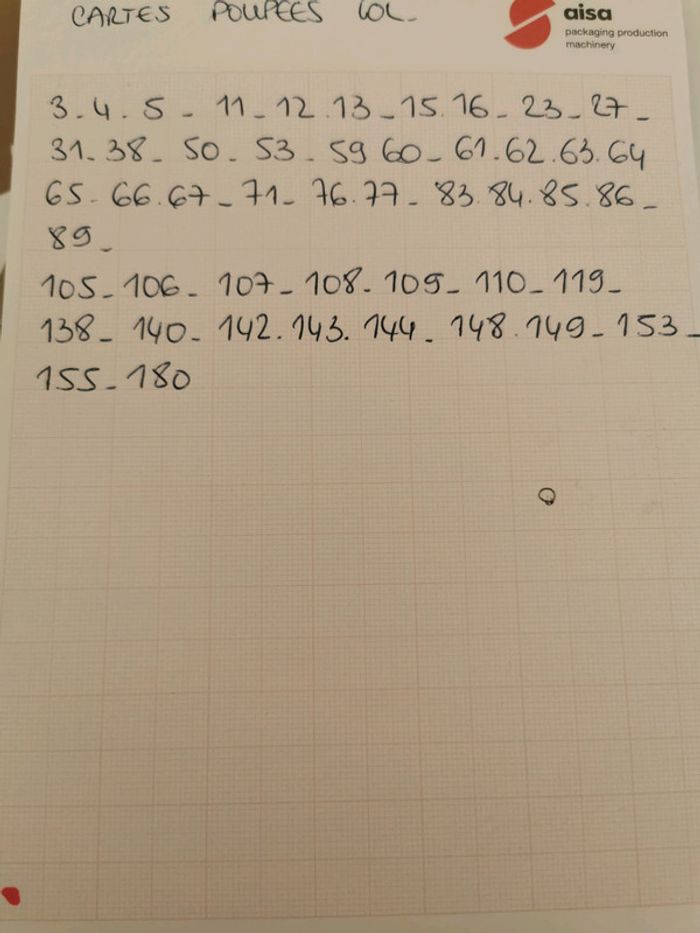 CARTES POUPEES LOL-
aisa
packaging production
machinery
3-4.5 - 11-12.13-15.16-23-27-
31-38-50-53-59 60-61.62.63.64
65-66.67-71-76.77-83.84.85.86-
89-
105-106-107-108-109-110-119-
138-140-142.143.144-148.149-153-
155-180